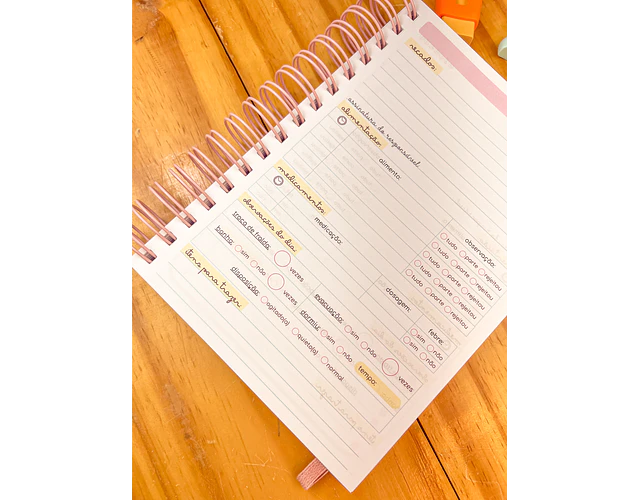 recados:
assinatura do responsável
alimentação:
alimento:
observação:
tudo parte rejeitou
tudo parte rejeitou
tudo parte rejeitou
tudo parte rejeitou
medicamentos
medicação:
dosagem:
febre:
sim não
sim não
observações do dia
troca de fralda: vezes
evacuação: sim não vezes
banho: sim não vezes
dormiu: sim não tempo:
disposição: agitado(a) quieto(a) normal
itens para trazer